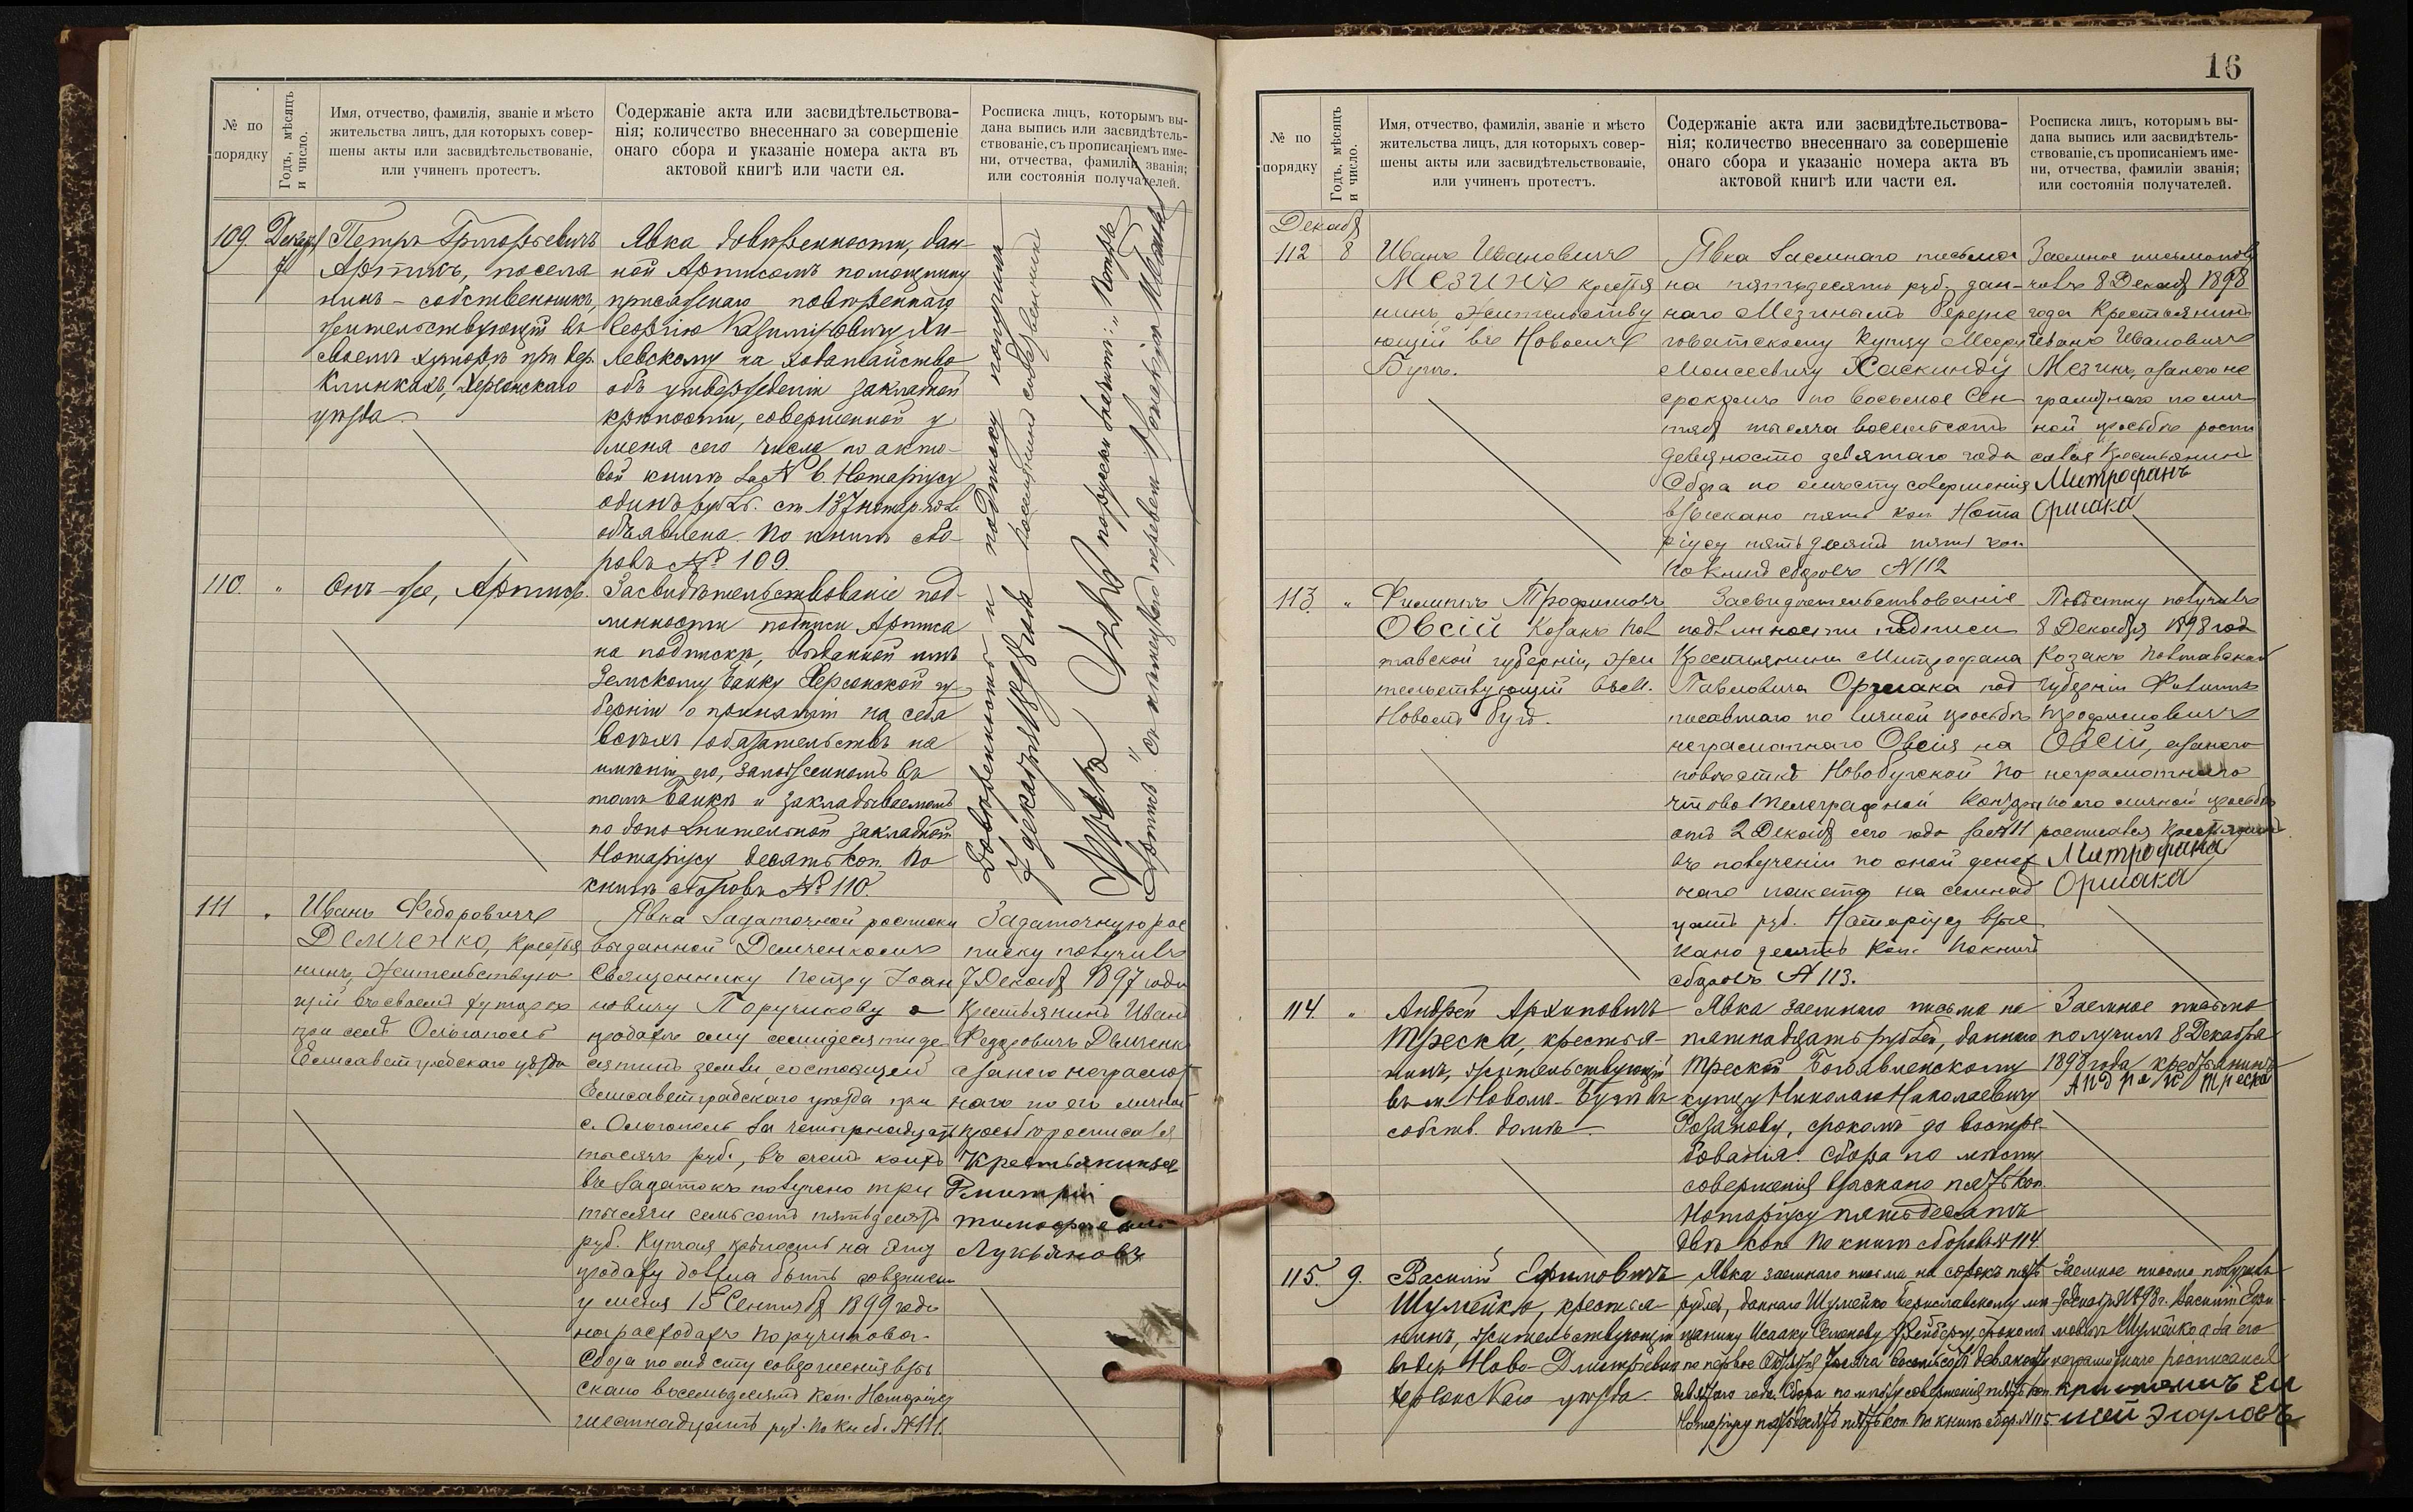 № по порядку
Годъ, мѣсяцъ и число.
Имя, отчество, фамилія, званіе и мѣсто
жительства лицъ, для которыхъ совер-
шены акты или засвидѣтельствованіе,
или учиненъ протестъ.
Содержаніе акта или засвидѣтельствова-
нія; количество внесеннаго за совершеніе
онаго сбора и указаніе номера акта въ
актовой книгѣ или части ея.
Росписка лицъ, которымъ вы-
дана выпись или засвидѣтель-
ствованіе, съ прописаніемъ име-
ни, отчества, фамиліи званія;
или состоянія получателей.
109. Декабря 7
Петръ Григорьевичъ
Артисъ, поселя
нинъ - собственникъ,
жительствующій въ
своемъ хуторѣ при дер.
Клинкахъ, Херсонскаго
уѣзда.
Явка довѣренности, дан-
ной Артисомъ помощнику
присяжнаго повѣреннаго
Георгію Казиміровичу
на ходатайство
объ утвержденіи закладной
крѣпости, совершенной у
меня сего числа по акто-
вой книгѣ за № 6. Нотаріусу
одинъ рубль. ст. 137 нотар. пол.
объявлена. По книгѣ сбо-
ровъ № 109.
110. "
Онъ-же, Артисъ.
Засвидѣтельствованіе под-
линности подписи Артиса
на подпискѣ, выданной имъ
Земскому Банку Херсонской гу-
берніи о принятіи на себя
всѣхъ обязательствъ на
имѣніи его, заложенномъ въ
томъ Банкѣ и закладываемомъ
по дополнительной закладной
Нотаріусу десять коп. По
книгѣ сборовъ № 110.
Довѣренность и подписку получилъ
7 декабря поселянинъ собственникъ
111 "
Иванъ Федоровичъ
Демченко, крестья
нинъ, жительствую
щій въ своемъ хуторѣ
при селѣ Ольгополѣ
Елисаветградскаго уѣзда
Явка задаточной росписки
выданной Демченкомъ
Священнику Петру Іоан
новичу Поручикову о
продажѣ ему семидесяти де
сятинъ земли, состоящей
Елисаветградскаго уѣзда при
с. Ольгополь за четырнадцать
тысячъ руб., въ счетъ коихъ
въ задатокъ получено три
тысячи семьсотъ пятьдесятъ
руб. Купчая крѣпость на эту
продажу должна быть совершена
у меня 15 Сентября 1899 года
на расходахъ Поручикова.
Сбора по мѣсту совершенія взы
скано восемьдесятъ коп. Нотаріусу
шестнадцать руб. По кн. сб. № 111.
Задаточную рос
писку получилъ
7 Декабря 1897 года
Крестьянинъ Иванъ
Федоровичъ Демченко
а за него неграмот
наго по его личной
просьбѣ росписался
Крестьянинъ
Дмитрій
Лукьяновъ
16
№ по порядку
Годъ, мѣсяцъ и число.
Имя, отчество, фамилія, званіе и мѣсто
жительства лицъ, для которыхъ совер-
шены акты или засвидѣтельствованіе,
или учиненъ протестъ.
Содержаніе акта или засвидѣтельствова-
нія; количество внесеннаго за совершеніе
онаго сбора и указаніе номера акта въ
актовой книгѣ или части ея.
Росписка лицъ, которымъ вы-
дана выпись или засвидѣтель-
ствованіе, съ прописаніемъ име-
ни, отчества, фамиліи званія;
или состоянія получателей.
Декабр
112 8
Иванъ Ивановичъ
Мезинъ крестья
нинъ жительству
ющій въ Новомъ
Бугѣ.
Явка заемнаго письма
на пятьдесятъ руб. дан-
наго Мезинымъ
купцу
Моисеевичу Хаскинду
срокомъ по восьмое Сен
тября тысяча восемьсотъ
девяносто девятаго года
Сбора по мѣсту совершенія
взыскано пять коп. Нота
ріусу пятьдесятъ пять коп.
По книгѣ сборовъ № 112
Заемное письмо полу
чилъ 8 Декабр 1898
года Крестьянинъ
Иванъ Ивановичъ
Мезинъ, а за него не
грамотнаго по лич
ной просьбѣ роспи
сался Крестьянинъ
Митрофанъ
Оршака
113. "
Филиппъ Трофимовъ
Овсій Козакъ Пол
тавской губерніи, жи
тельствующій въ м.
Новомъ Бугѣ.
Засвидѣтельствованіе
подлинности подписи
Крестьянина Митрофана
Павловича Оршака под
писавшаго по личной просьбѣ
неграмотнаго Овсія на
повѣсткѣ Новобугской По
чтово Телеграфной Конторы
отъ 2 Декабр сего года за № 11
въ полученіи по оной денеж
наго пакета на семнад
цать руб. Нотаріусу взыс
кано десять коп. По книгѣ
сборовъ № 113.
Повѣстку получилъ
8 Декабря 1898 год
Козакъ Полтавской
губерніи Филиппъ
Трофимовичъ
Овсій, а за него
неграмотнаго
по его личной просьбѣ
росписался Крестьянинъ
Митрофанъ
Оршака
114. "
Андрей Архиповичъ
Треска, крестья-
нинъ, жительствующій
въ м. Новомъ-Бугѣ въ
собств. домѣ.
Явка заемнаго письма на
пятнадцать рублей, даннаго
Треской Богоявленскому
купцу Николаю Николаевичу
Розанову, срокомъ до востре-
бованія. Сбора по мѣсту
совершенія взыскано пять коп.
Нотаріусу пятьдесятъ
двѣ коп. По книгѣ сборовъ № 114
Заемное письмо
получилъ 8 Декабря
1898 года крестьянинъ
Андрей Треска
115. 9.
Василій Ефимовичъ
Шумейко, крестья-
нинъ, жительствующій
въ дер. Ново-Дмитревка
Херсонскаго уѣзда.
Явка заемнаго письма на сорокъ пять
рублей, даннаго Шумейко Бериславскому мѣ-
щанину Исааку Семенову Фейнбергу, срокомъ
по первое Октября тысяча восемьсотъ девяносто
девятаго года. Сбора по мѣсту совершенія пять коп.
Нотаріусу пятьдесятъ пять коп. По книгѣ сбор. № 115.
Заемное письмо получилъ
9 Декабря 1898 г. Василій Ефи
мовъ Шумейко а за его
неграмотнаго росписался